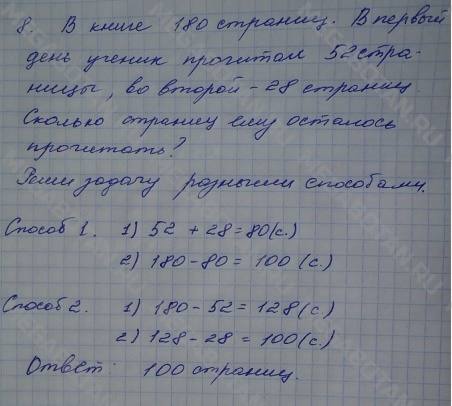 8. В книге 180 страниц. В первый
день ученик прочитал 52 стра-
ницы, во второй - 28 страниц.
Сколько страниц ему осталось
прочитать?
Реши задачу разными способами.
Способ 1. 1) 52 + 28 = 80 (с.)
2) 180 - 80 = 100 (с.)
Способ 2. 1) 180 - 52 = 128 (с)
2) 128 - 28 = 100 (с)
Ответ 100 страниц.